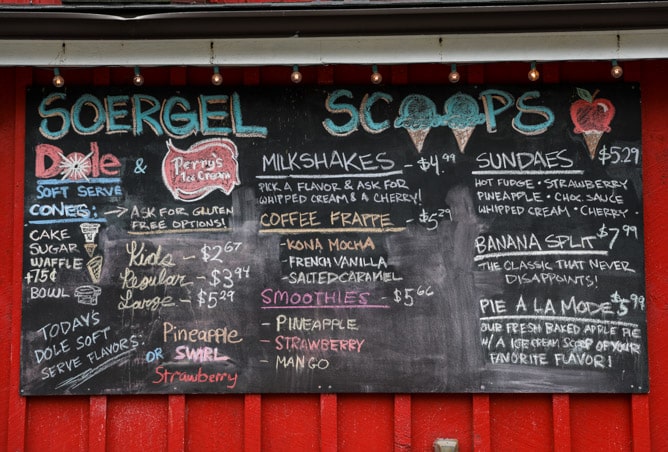 SOERGEL SCOOPS
Dole & Perry's Ice Cream
SOFT SERVE
CONES: → ASK FOR GLUTEN FREE OPTIONS!
CAKE
SUGAR
WAFFLE
+75¢
BOWL
Kids - $2.67
Regular - $3.94
Large - $5.29
TODAYS
DOLE SOFT
SERVE FLAVORS:
Pineapple
OR SWIRL
Strawberry
MILKSHAKES - $4.99
PICK A FLAVOR & ASK FOR
WHIPPED CREAM & A CHERRY!
COFFEE FRAPPE - $5.29
- KONA MOCHA
- FRENCH VANILLA
- SALTED CARAMEL
SMOOTHIES - $5.66
- PINEAPPLE
- STRAWBERRY
- MANGO
SUNDAES - $5.29
HOT FUDGE · STRAWBERRY
PINEAPPLE · CHOC. SAUCE
WHIPPED CREAM · CHERRY
BANANA SPLIT - $7.99
- THE CLASSIC THAT NEVER
DISAPPOINTS!
PIE A LA MODE $5.99
OUR FRESH BAKED APPLE PIE
W/ A ICE CREAM SCOOP OF YOUR
FAVORITE FLAVOR!